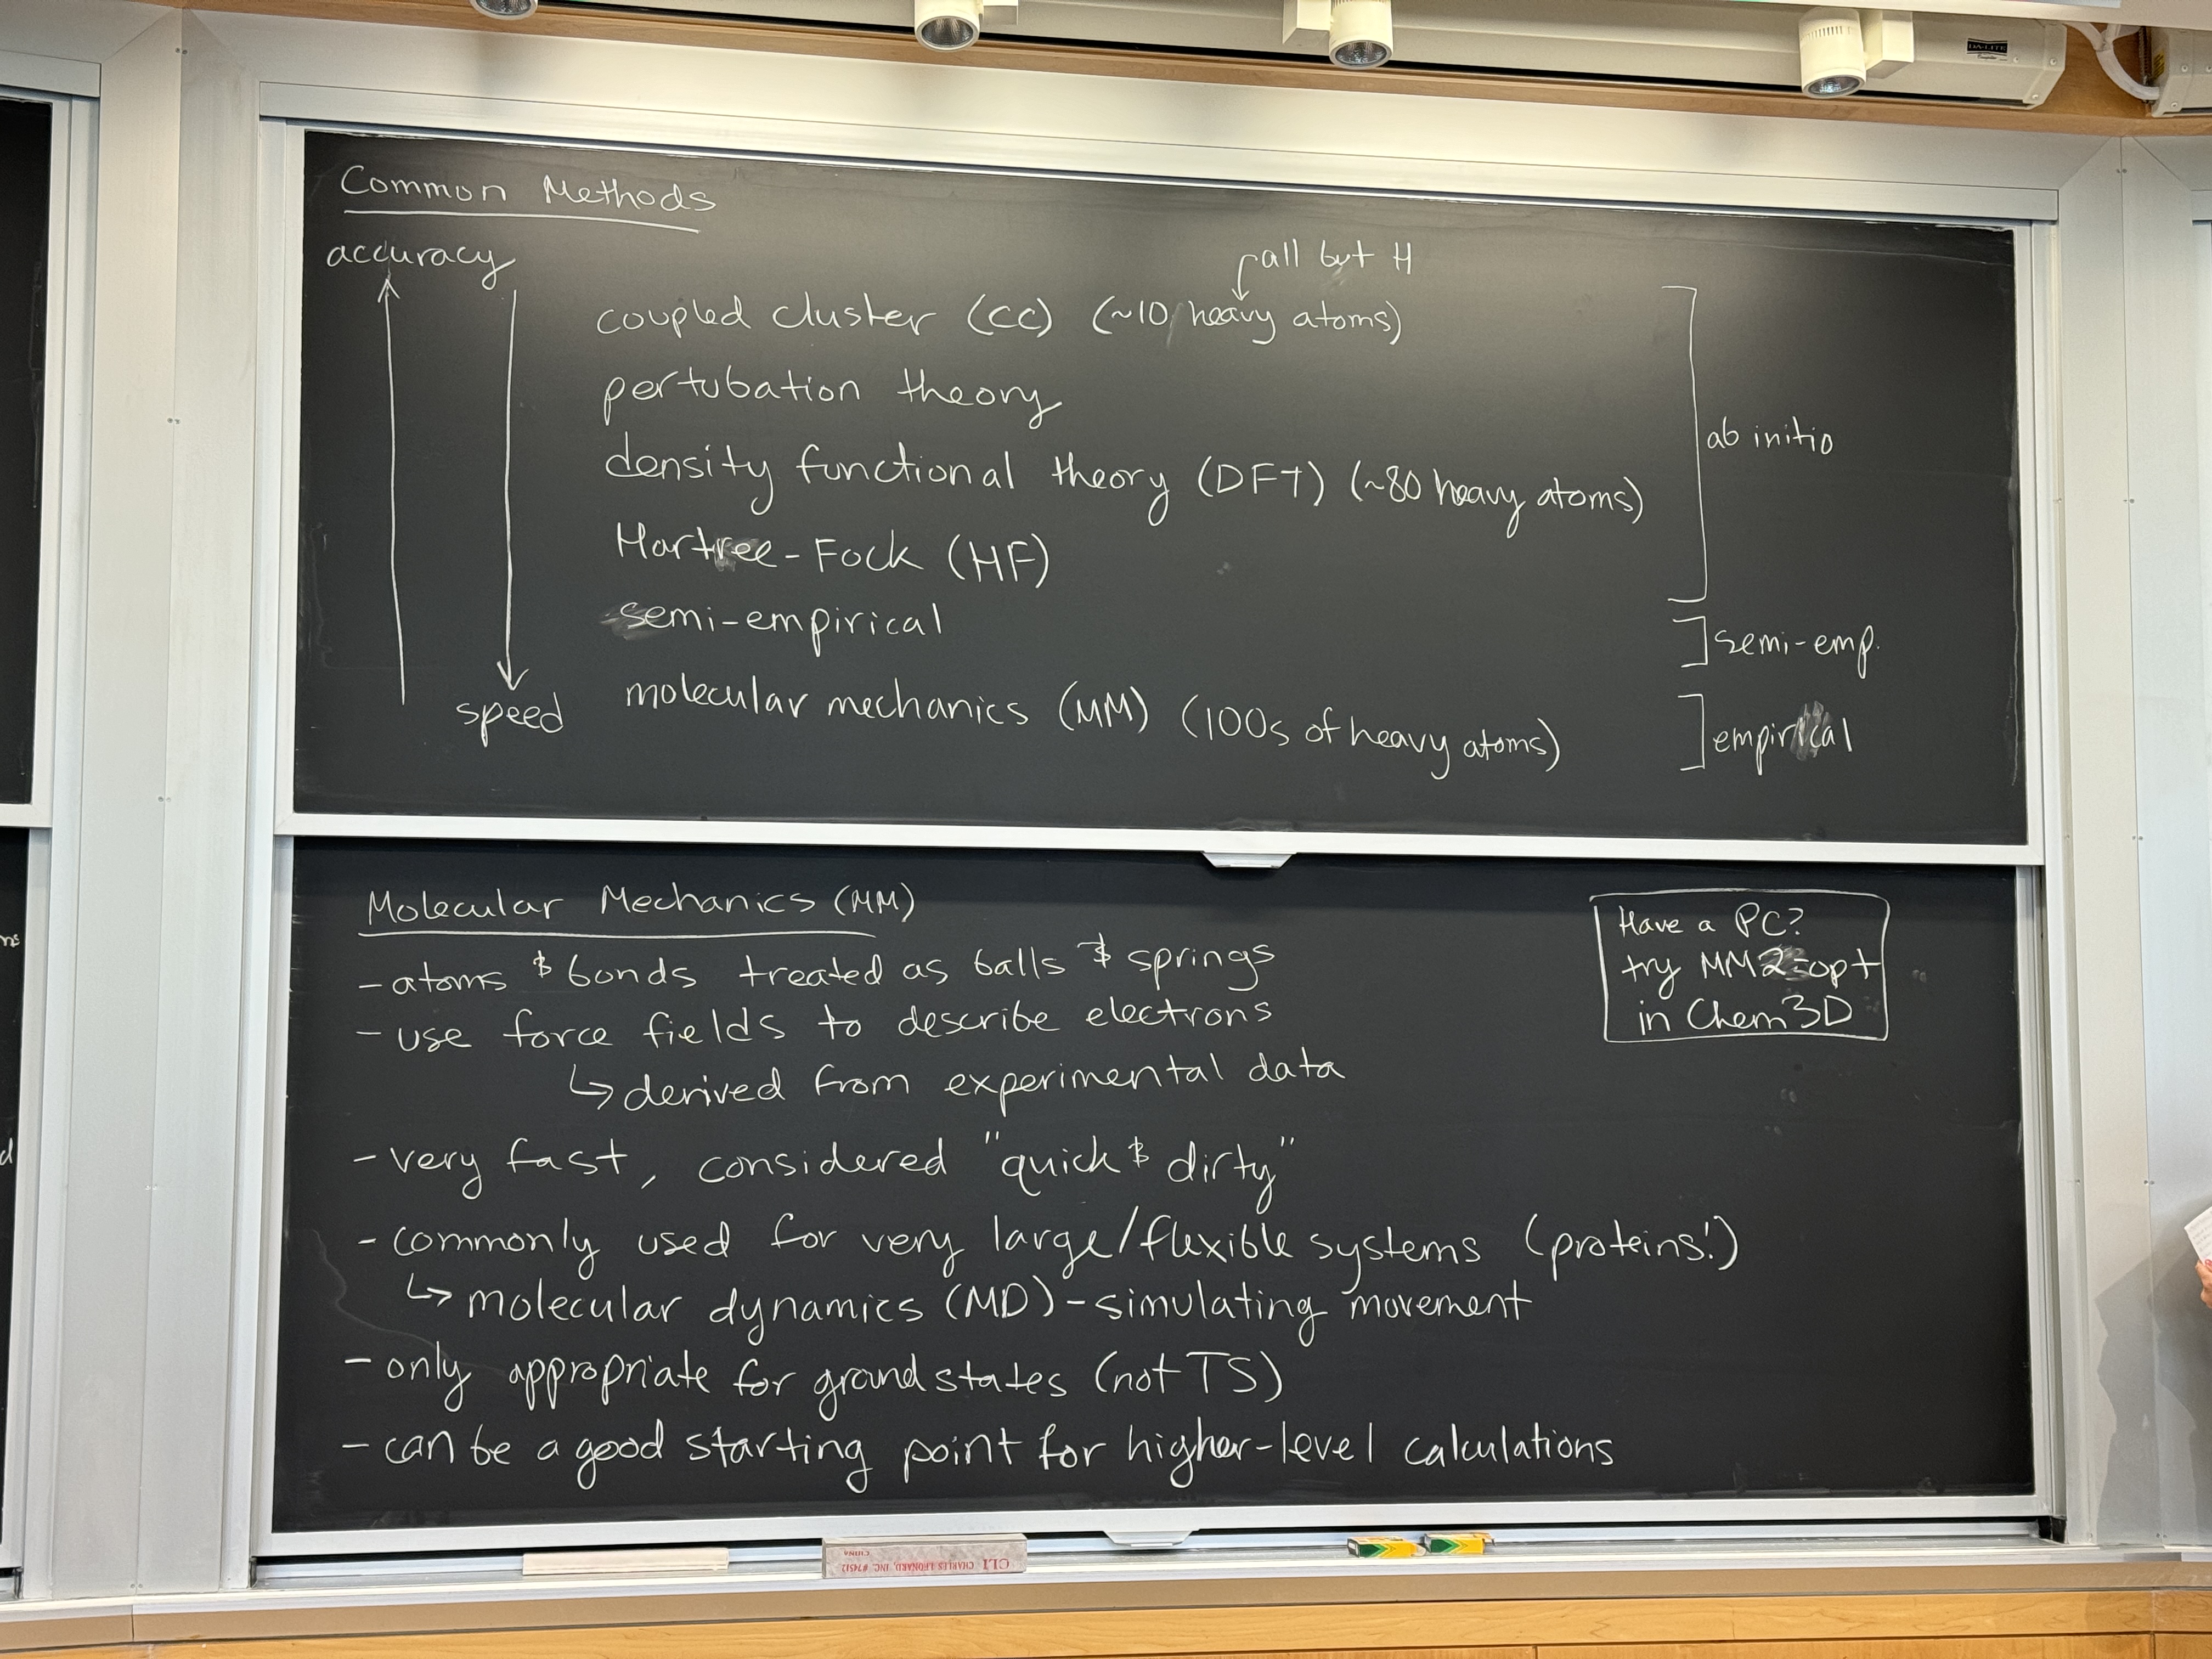 DA-LITE
Common Methods
accuracy
all but H
coupled cluster (CC) (~10 heavy atoms)
pertubation theory
density functional theory (DFT) (~80 heavy atoms)
ab initio
Hartree-Fock (HF)
semi-empirical
semi-emp.
speed
molecular mechanics (MM) (100s of heavy atoms)
empirical
Molecular Mechanics (MM)
- atoms & bonds treated as balls & springs
- use force fields to describe electrons
↳ derived from experimental data
- very fast, considered "quick & dirty"
- commonly used for very large/flexible systems (proteins!)
↳ molecular dynamics (MD) - simulating movement
- only appropriate for ground states (not TS)
- can be a good starting point for higher-level calculations
Have a PC?
try MM2 opt
in Chem3D
CLI CHARLES LEONARD, INC. #74512
CHINA